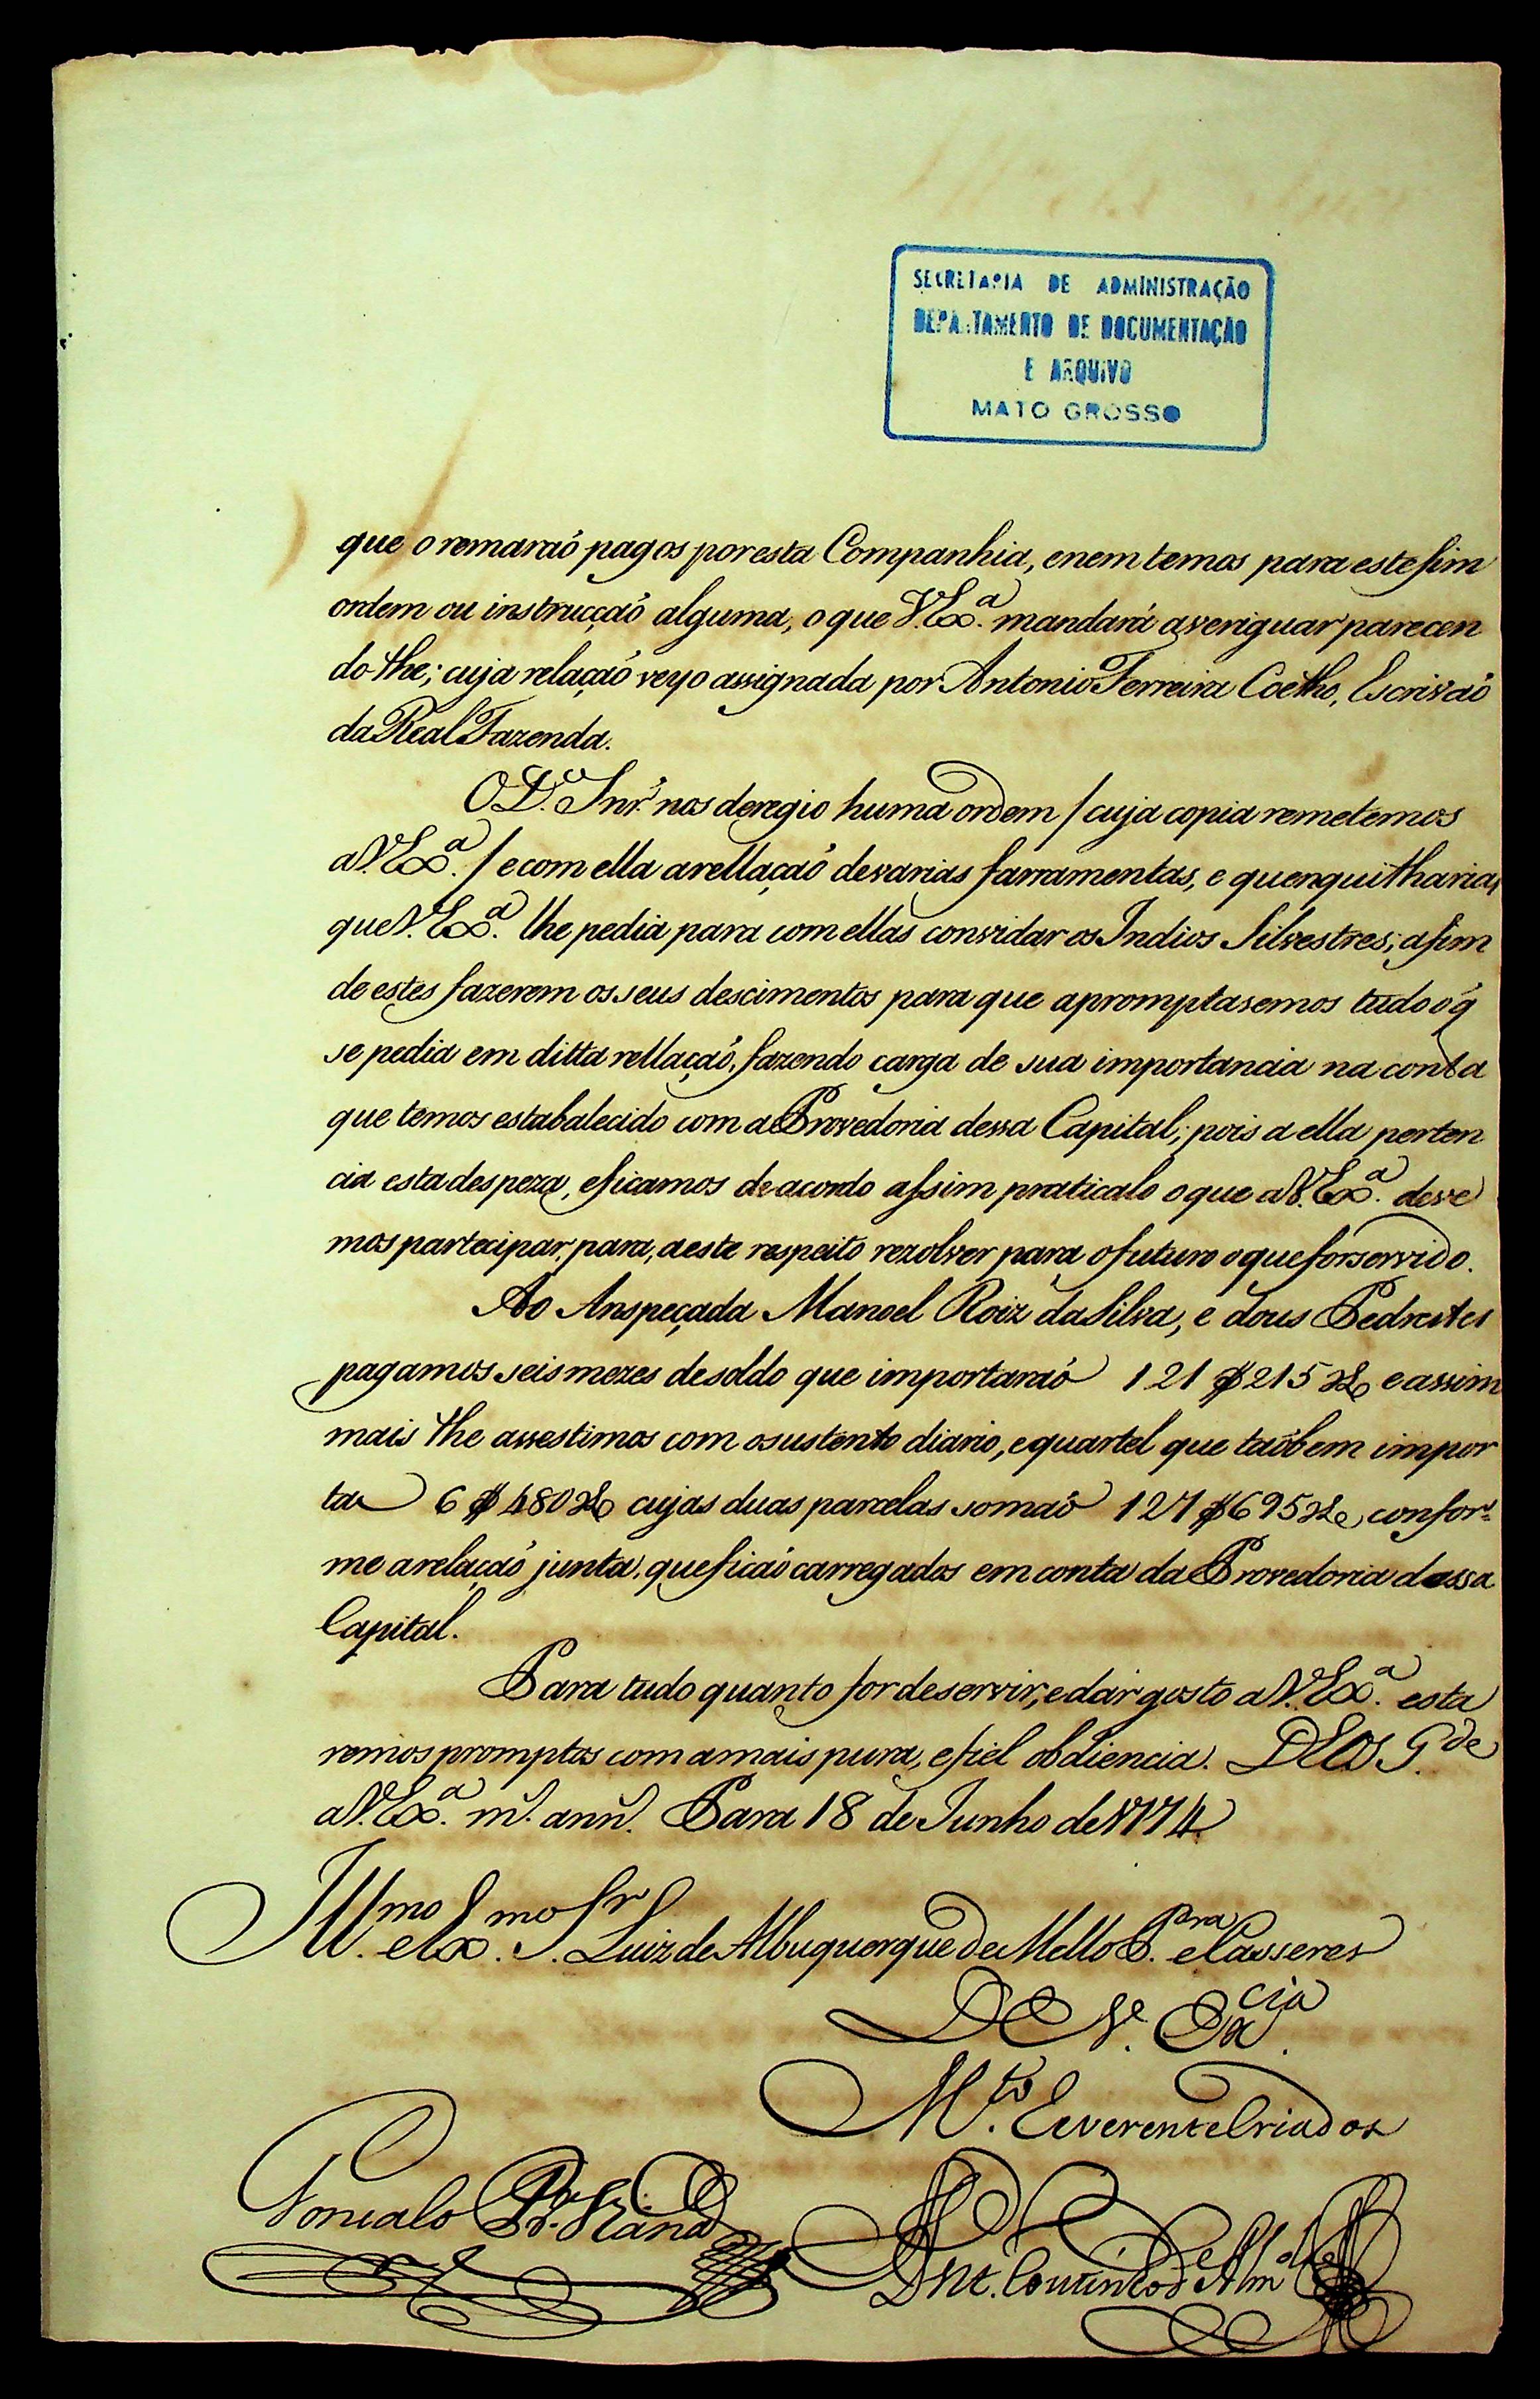 SECRETARIA DE ADMINISTRAÇÃO
DEPARTAMENTO DE DOCUMENTAÇÃO
E ARQUIVO
MATO GROSSO
que o remaraó pagos por esta Companhia, e nem temos para este fim
ordem ou instrucçaó alguma, o que V. Exa. mandará averiguar parecen
do-lhe; cuja relaçaó veyo assignada por Antonio Ferreira Coelho, Escrivaó
da Real Fazenda.
O D.º Snr.' nos deregio huma ordem / cuja copia remetemos
a V. Exa. / e com ella a rellaçaó de varias farramentas, e quenquilharias
que V. Exa. lhe pedia para com ellas convidar os Indios Silvestres; afim
de estes fazerem os seus descimentos para que apromptasemos tudo o q̃
se pedia em ditta rellaçaó, fazendo carga de sua importancia na conta
que temos estabalecido com a Provedoria dessa Capital; pois a ella perten
cia esta despeza, e ficamos de acordo assim praticalo o que a V. Exa. deve
mos partecipar, para, a este respeito rezolver para o futuro o que for servido.
Ao Anspeçada Manoel Roiz da Silva, e dous Pedrestes
pagamos seis mezes de soldo que importaraó 121$215 rs e assim
mais lhe assestimos com o sustento diario, e quartel que taóbem impor
ta 6$480 rs cujas duas parcelas somaó 127$695 rs confor-
me a relaçaó junta, que ficaó carregados em conta da Provedoria dessa
Capital.
Para tudo quanto for de servir, e dar gosto a V. Exa. esta
remos promptos com a mais pura, e fiel obdiencia. DEOS G.de
a V. Exa. m.s ann.s Para 18 de Junho de 1774
Illmo. e Exmo. Sr. Luiz de Albuquerque de Mello P.ra e Casseres
De V. Excia.
M.to Reverente Criados
Goncalo P.ra Viana
Ant. Coutinho de Alm.da